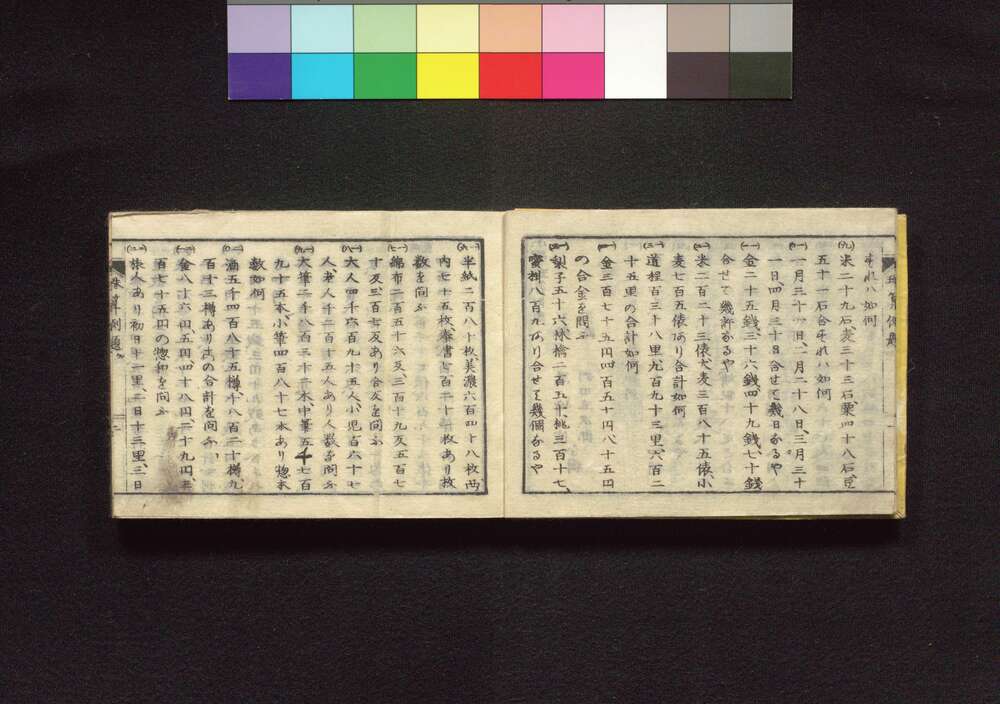 それハ如何
(九)米二十九石麦三十三石、粟四十八石、豆
五十一石合それハ如何
一月三十一日、二月二十八日、三月三十
一日、四月三十日合せて幾日なるや
金二十五銭、三十六銭、四十九銭、七十銭
合せて幾許なるや
米二百二十三俵大麦三百八十五俵小
麦七百五俵あり合計如何
道程百三十八里、九百九十三里、六百二
十五里の合計如何
金三百七十五円四百五十円八十五円
の合金を問ふ
梨子五十六林檎二百五十、桃三百十七、
蜜柑八百九あり合せて幾個なるや
半紙二百八十枚、美濃六百四十八枚、西
内七十五枚奉書百二十枚あり枚
数を問ふ
綿布二百五十六反三百十九反五百七
十反三百七反あり合反を問ふ
大人四千六百九十五人、小児百六十七
人老人千二百十五人あり人数を問ふ
大筆二千八百三十二本、中筆五千七百
九十五本、小筆四百八十七本あり惣本
数如何
酒五千四百八十五樽、千八百二十樽、九
百十三樽あり此の合計を問ふ
金八十六円、五円四十八円二十九円三
百七十五円の惣和を問ふ
旅人あり初日十一里、二日十三里、三日
珠算例題